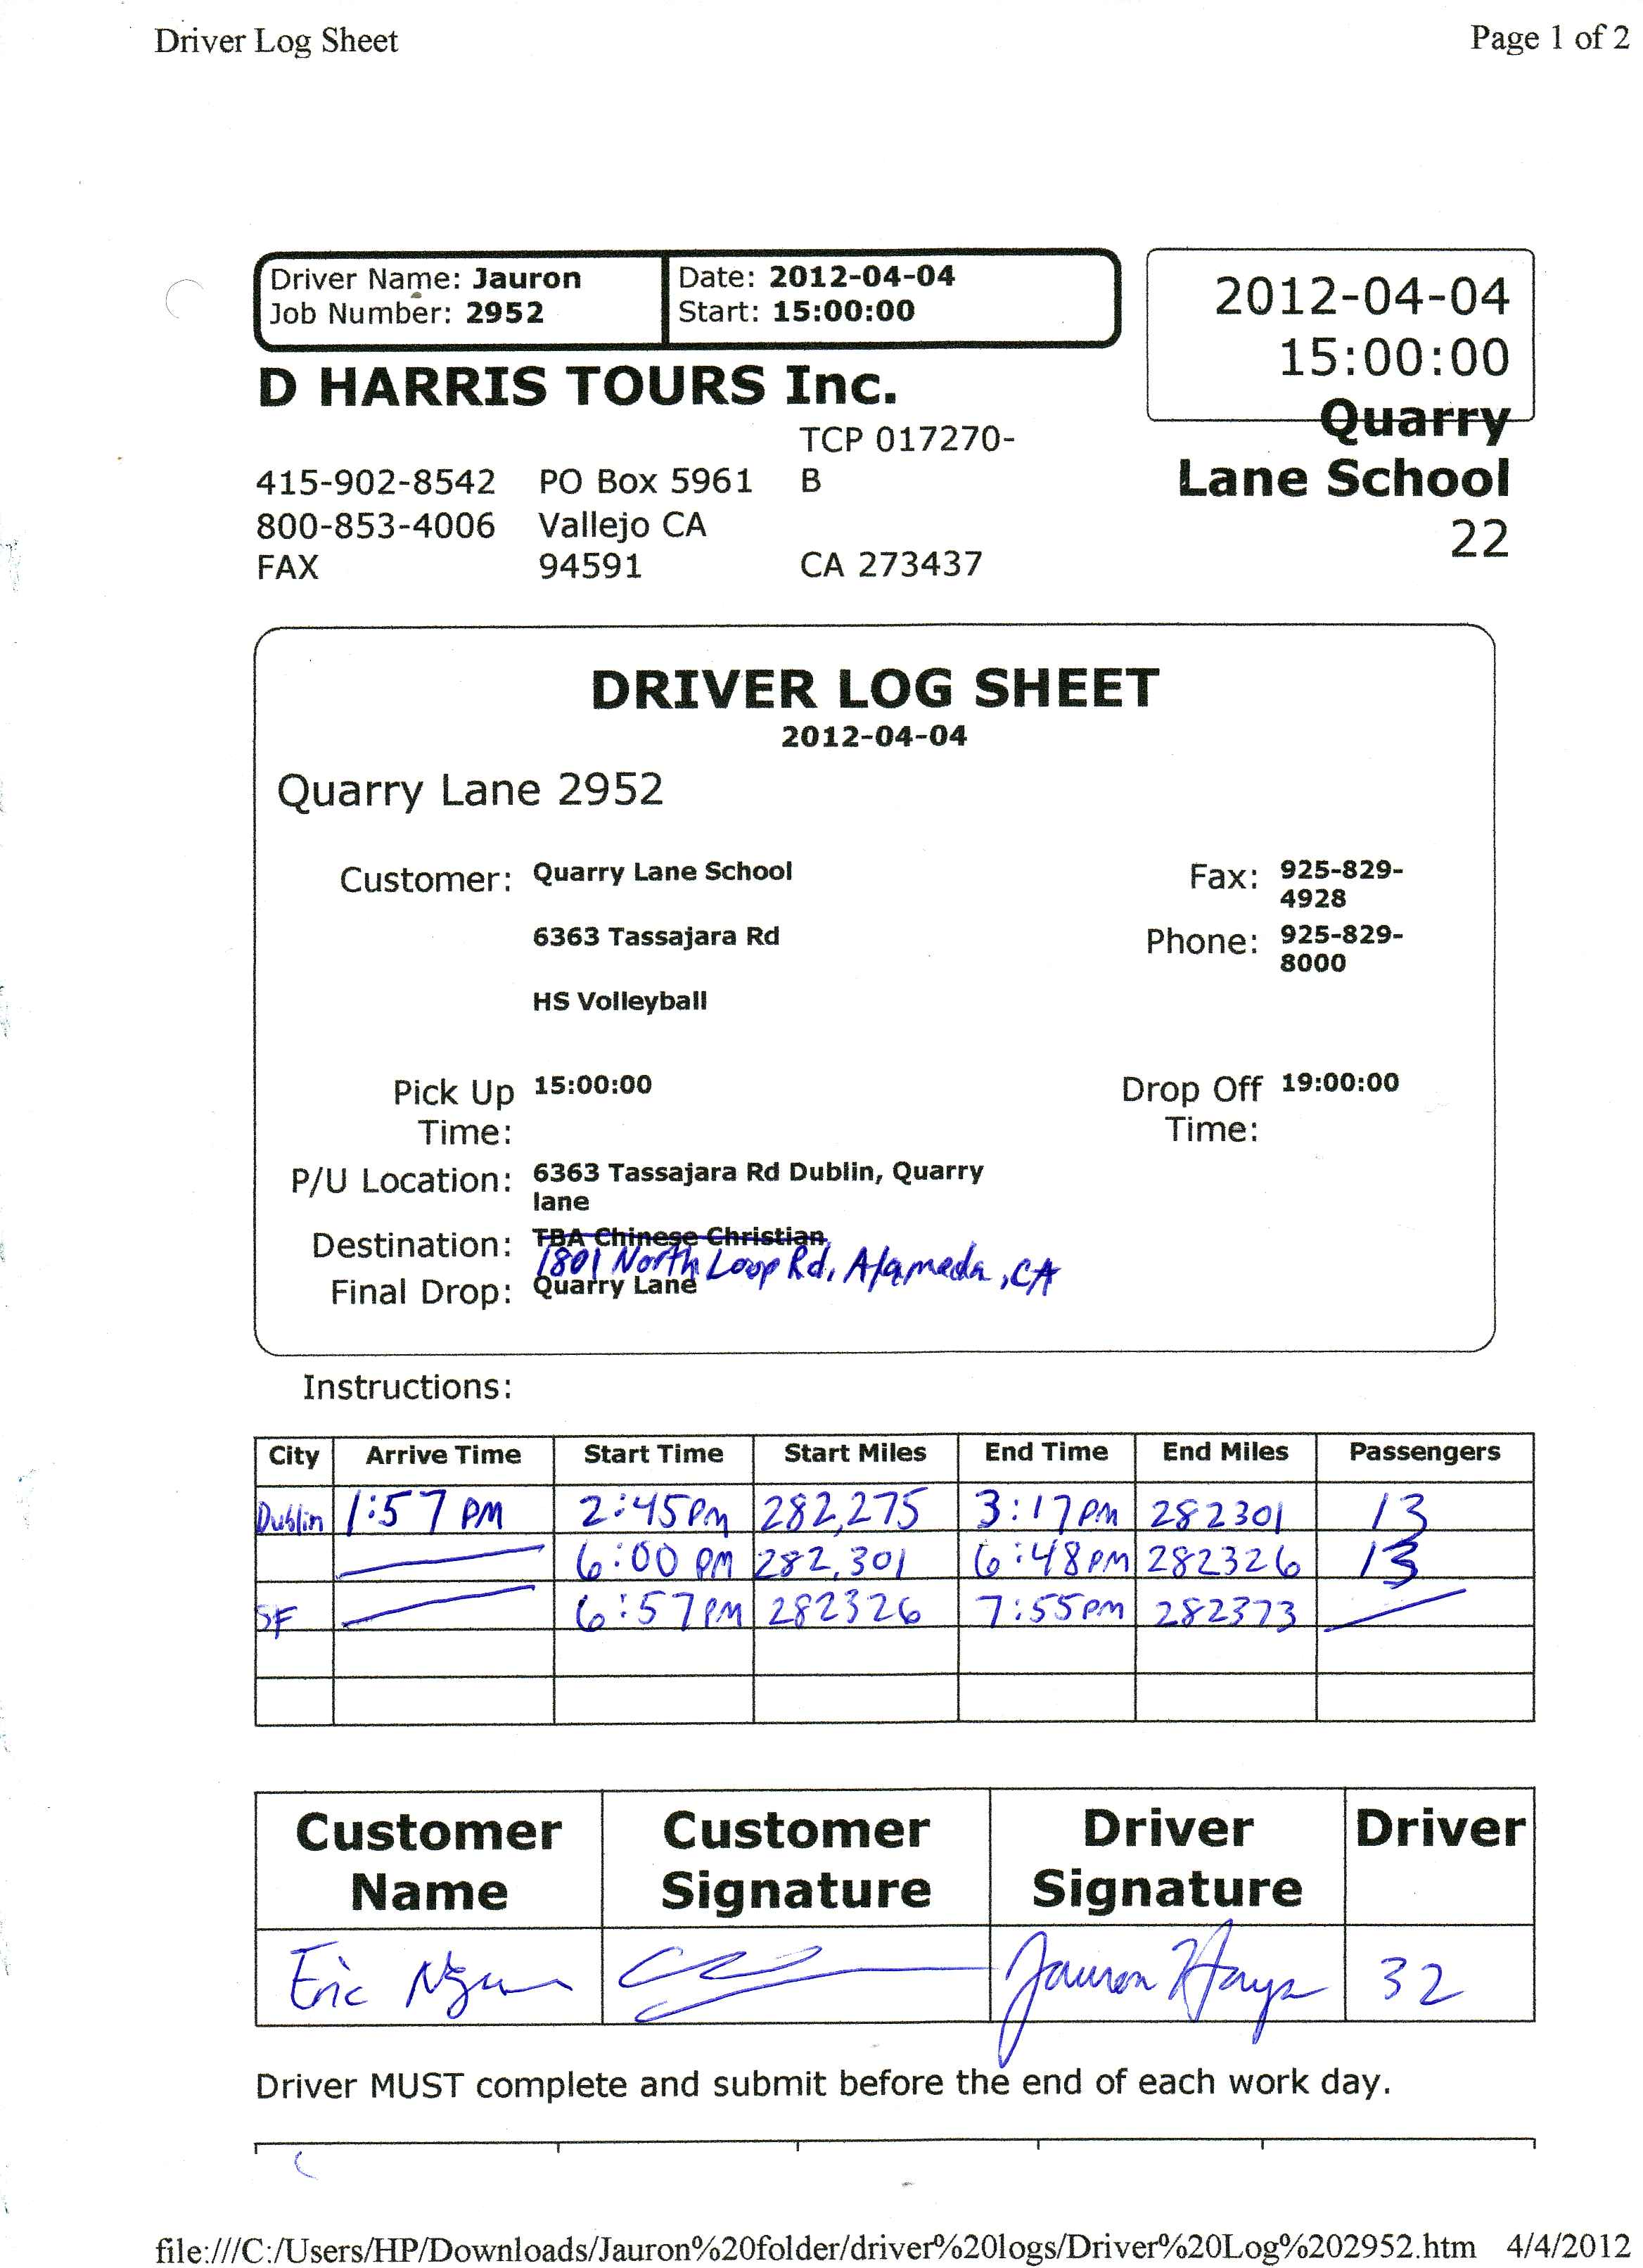 Driver Log Sheet
Page 1 of 2
Driver Name: Jauron
Job Number: 2952
Date: 2012-04-04
Start: 15:00:00
2012-04-04
15:00:00
Quarry
Lane School
22
D HARRIS TOURS Inc.
TCP 017270-
415-902-8542 PO Box 5961 B
800-853-4006 Vallejo CA
FAX 94591 CA 273437
DRIVER LOG SHEET
2012-04-04
Quarry Lane 2952
Customer: Quarry Lane School
Fax: 925-829-
4928
6363 Tassajara Rd
Phone: 925-829-
8000
HS Volleyball
Pick Up 15:00:00
Time:
Drop Off 19:00:00
Time:
P/U Location: 6363 Tassajara Rd Dublin, Quarry
lane
Destination: TBA Chinese Christian
1801 North Loop Rd, Alameda, CA
Final Drop: Quarry Lane
Instructions:
City Arrive Time Start Time Start Miles End Time End Miles Passengers
Dublin 1:57 PM 2:45PM 282,275 3:17PM 282301 13
6:00 PM 282,301 6:48PM 282326 13
SF 6:57PM 282326 7:55PM 282373
Customer Name Customer Signature Driver Signature Driver
Eric Jauron Hays 32
Driver MUST complete and submit before the end of each work day.
file:///C:/Users/HP/Downloads/Jauron%20folder/driver%20logs/Driver%20Log%202952.htm 4/4/2012